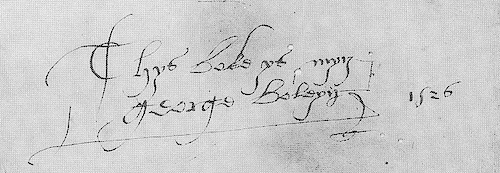 Thys boke ys myn
george boleyn 1526